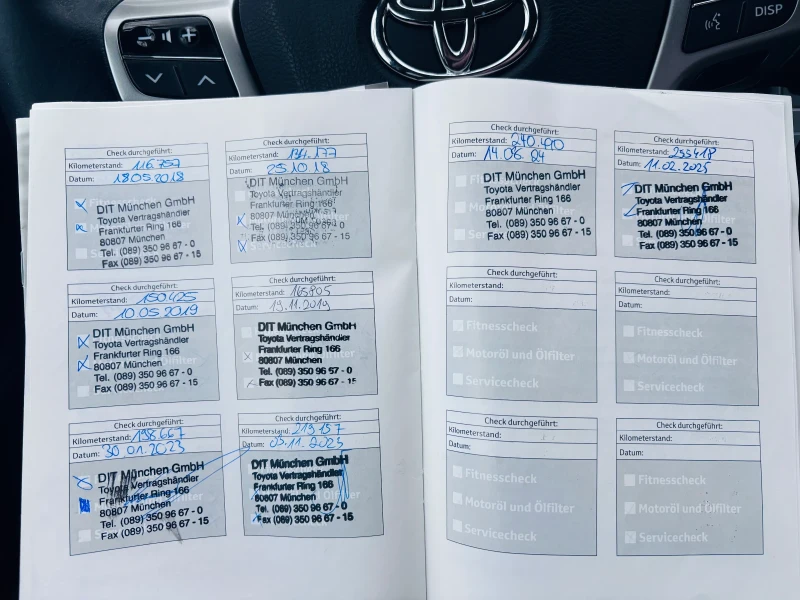 DISP
Check durchgeführt:
Kilometerstand: 116.757
Datum: 18.05.2018
DIT München GmbH
Toyota Vertragshändler
Frankfurter Ring 166
80807 München
Tel. (089) 350 96 67 - 0
Fax (089) 350 96 67 - 15
Check durchgeführt:
Kilometerstand: 134.177
Datum: 25.10.18
DIT München GmbH
Toyota Vertragshändler
Frankfurter Ring 166
80807 München
Tel. (089) 350 96 67 - 0
Fax (089) 350 96 67 - 15
Servicecheck
Check durchgeführt:
Kilometerstand: 150.425
Datum: 10.05.2019
DIT München GmbH
Toyota Vertragshändler
Frankfurter Ring 166
80807 München
Tel. (089) 350 96 67 - 0
Fax (089) 350 96 67 - 15
Check durchgeführt:
Kilometerstand: 165.805
Datum: 19.11.2019
DIT München GmbH
Toyota Vertragshändler
Frankfurter Ring 166
80807 München
Tel. (089) 350 96 67 - 0
Fax (089) 350 96 67 - 15
Check durchgeführt:
Kilometerstand: 198.667
Datum: 30.01.2023
DIT München GmbH
Toyota Vertragshändler
Frankfurter Ring 166
80807 München
Tel. (089) 350 96 67 - 0
Fax (089) 350 96 67 - 15
Check durchgeführt:
Kilometerstand: 213.157
Datum: 03.11.2023
DIT München GmbH
Toyota Vertragshändler
Frankfurter Ring 166
80807 München
Tel. (089) 350 96 67 - 0
Fax (089) 350 96 67 - 15
Check durchgeführt:
Kilometerstand:
Datum: 14.06.24
DIT München GmbH
Toyota Vertragshändler
Frankfurter Ring 166
80807 München
Tel. (089) 350 96 67 - 0
Fax (089) 350 96 67 - 15
Check durchgeführt:
Kilometerstand: 255418
Datum: 11.02.2025
DIT München GmbH
Toyota Vertragshändler
Frankfurter Ring 166
80807 München
Tel. (089) 350 96 67 - 0
Fax (089) 350 96 67 - 15
Check durchgeführt:
Kilometerstand:
Datum:
Fitnesscheck
Motoröl und Ölfilter
Servicecheck
Check durchgeführt:
Kilometerstand:
Datum:
Fitnesscheck
Motoröl und Ölfilter
Servicecheck
Check durchgeführt:
Kilometerstand:
Datum:
Fitnesscheck
Motoröl und Ölfilter
Servicecheck
Check durchgeführt:
Kilometerstand:
Datum:
Fitnesscheck
Motoröl und Ölfilter
Servicecheck